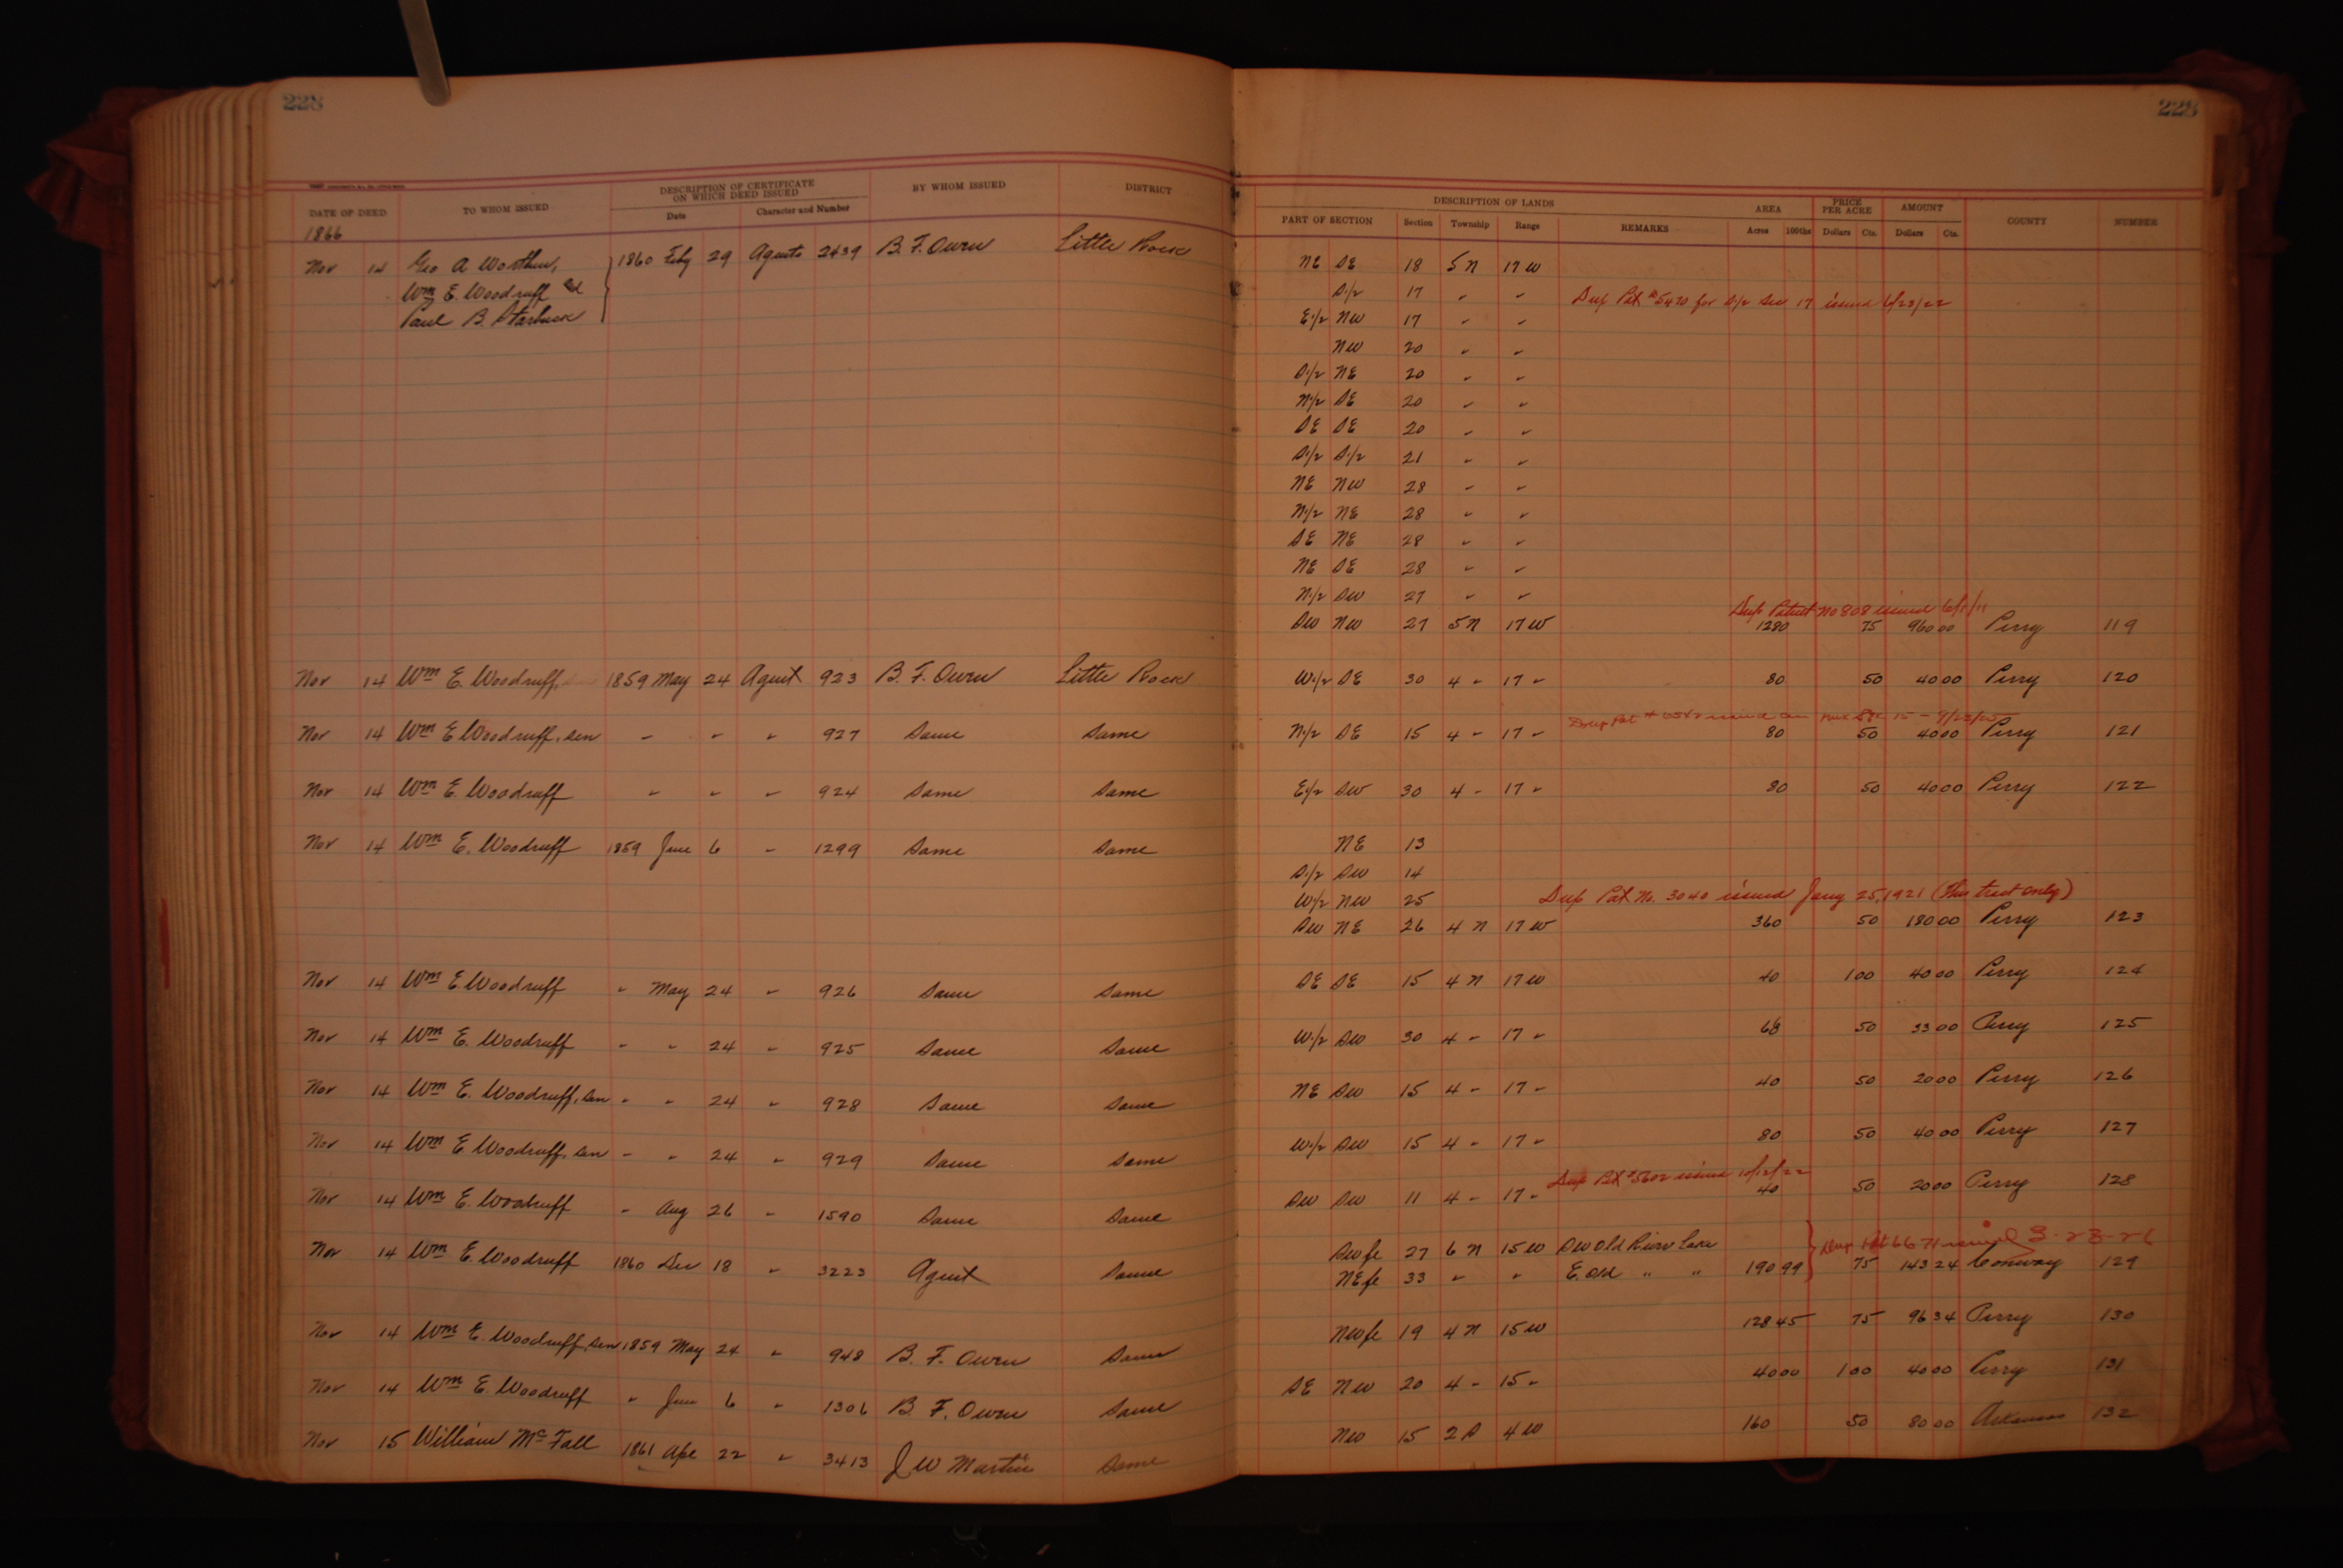 228 228
DESCRIPTION OF CERTIFICATE ON WHICH DEED ISSUED DESCRIPTION OF LANDS
DATE OF DEED TO WHOM ISSUED Date Character and Number BY WHOM ISSUED DISTRICT PART OF SECTION Section Township Range REMARKS AREA Acres 100ths PRICE PER ACRE Dollars Cts. AMOUNT Dollars Cts. COUNTY NUMBER
1866
Nov 14 Geo A Worthen, 1860 Feby 29 Agents 2439 B. F. Owen Little Rock NE SE 18 5 N 17 W
Wm E. Woodruff & S 1/2 17 " " Dup Pat #5470 for S/2 Sec 17 issued 6/23/22
Paul B. Starbuck E 1/2 NW 17 " "
NW 20 " "
S 1/2 NE 20 " "
N 1/2 SE 20 " "
SE SE 20 " "
S 1/2 S 1/2 21 " "
NE NW 28 " "
N 1/2 NE 28 " "
SE NE 28 " "
NE SE 28 " "
N 1/2 SW 27 " "
Dup Patent No 808 issued 6/1/11
SW NW 27 5 N 17 W 1280 75 960 00 Perry 119
Nov 14 Wm E. Woodruff, sen 1859 May 24 Agent 923 B. F. Owen Little Rock W 1/2 SE 30 4 " 17 " 80 50 40 00 Perry 120
Dup Pat # issued on
Nov 14 Wm E Woodruff, sen " " " 927 Same Same N 1/2 SE 15 4 " 17 " 80 50 40 00 Perry 121
Nov 14 Wm E. Woodruff " " " 924 Same Same E 1/2 SW 30 4 " 17 " 80 50 40 00 Perry 122
Nov 14 Wm E. Woodruff 1859 June 6 " 1299 Same Same NE 13
S 1/2 SW 14
W 1/2 NW 25 Dup Pat No. 3040 issued Jany 25, 1921 (This tract only)
SW NE 26 4 N 17 W 360 50 180 00 Perry 123
Nov 14 Wm E. Woodruff " May 24 " 926 Same Same SE SE 15 4 N 17 W 40 1 00 40 00 Perry 124
Nov 14 Wm E. Woodruff " " 24 " 925 Same Same W 1/2 SW 30 4 " 17 " 50 33 00 Perry 125
Nov 14 Wm E. Woodruff, sen " " 24 " 928 Same Same NE SW 15 4 " 17 " 40 50 20 00 Perry 126
Nov 14 Wm E Woodruff, sen " " 24 " 929 Same Same W 1/2 SW 15 4 " 17 " 80 50 40 00 Perry 127
Dup Pat #5602 issued 10/12/22
Nov 14 Wm E. Woodruff " Aug 26 " 1590 Same Same SW SW 11 4 " 17 " 40 50 20 00 Perry 128
SW fr 27 6 N 15 W SW Old River Lake Dup Pat 6671 issued 3-23-26
Nov 14 Wm E. Woodruff 1860 Dec 18 " 3223 Agent Same NE fr 33 " " E. Old " " 190 99 75 143 24 Conway 129
Nov 14 Wm E. Woodruff, sen 1859 May 24 " 948 B. F. Owen Same NW fr 19 4 N 15 W 128 45 75 96 34 Perry 130
Nov 14 Wm E. Woodruff " June 6 " 1306 B. F. Owen Same SE NW 20 4 " 15 " 40 00 1 00 40 00 Perry 131
Nov 15 William McFall 1861 Apr 22 " 3413 J W Martin Same NW 15 2 S 4 W 160 50 80 00 Arkansas 132